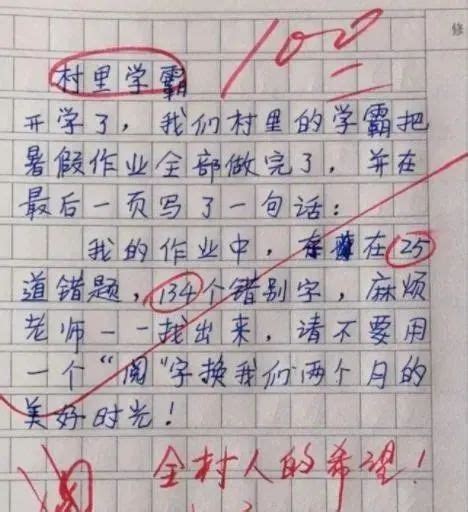 修
100
村里学霸
开学了，我们村里的学霸把
暑假作业全部做完了，并在
最后一页写了一句话：
我的作业中，存在25
道错题，134个错别字，麻烦
老师一一找出来，请不要用
一个“阅”字换我们两个月的
美好时光！
全村人的希望！
阅